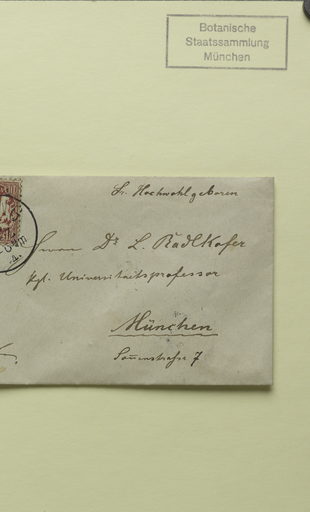 Botanische
Staatssammlung
München
Sr. Hochwohlgeboren
Herrn Dr L. Radlkofer
Kgl. Universitätsprofessor
München
Sonnenstraße 7